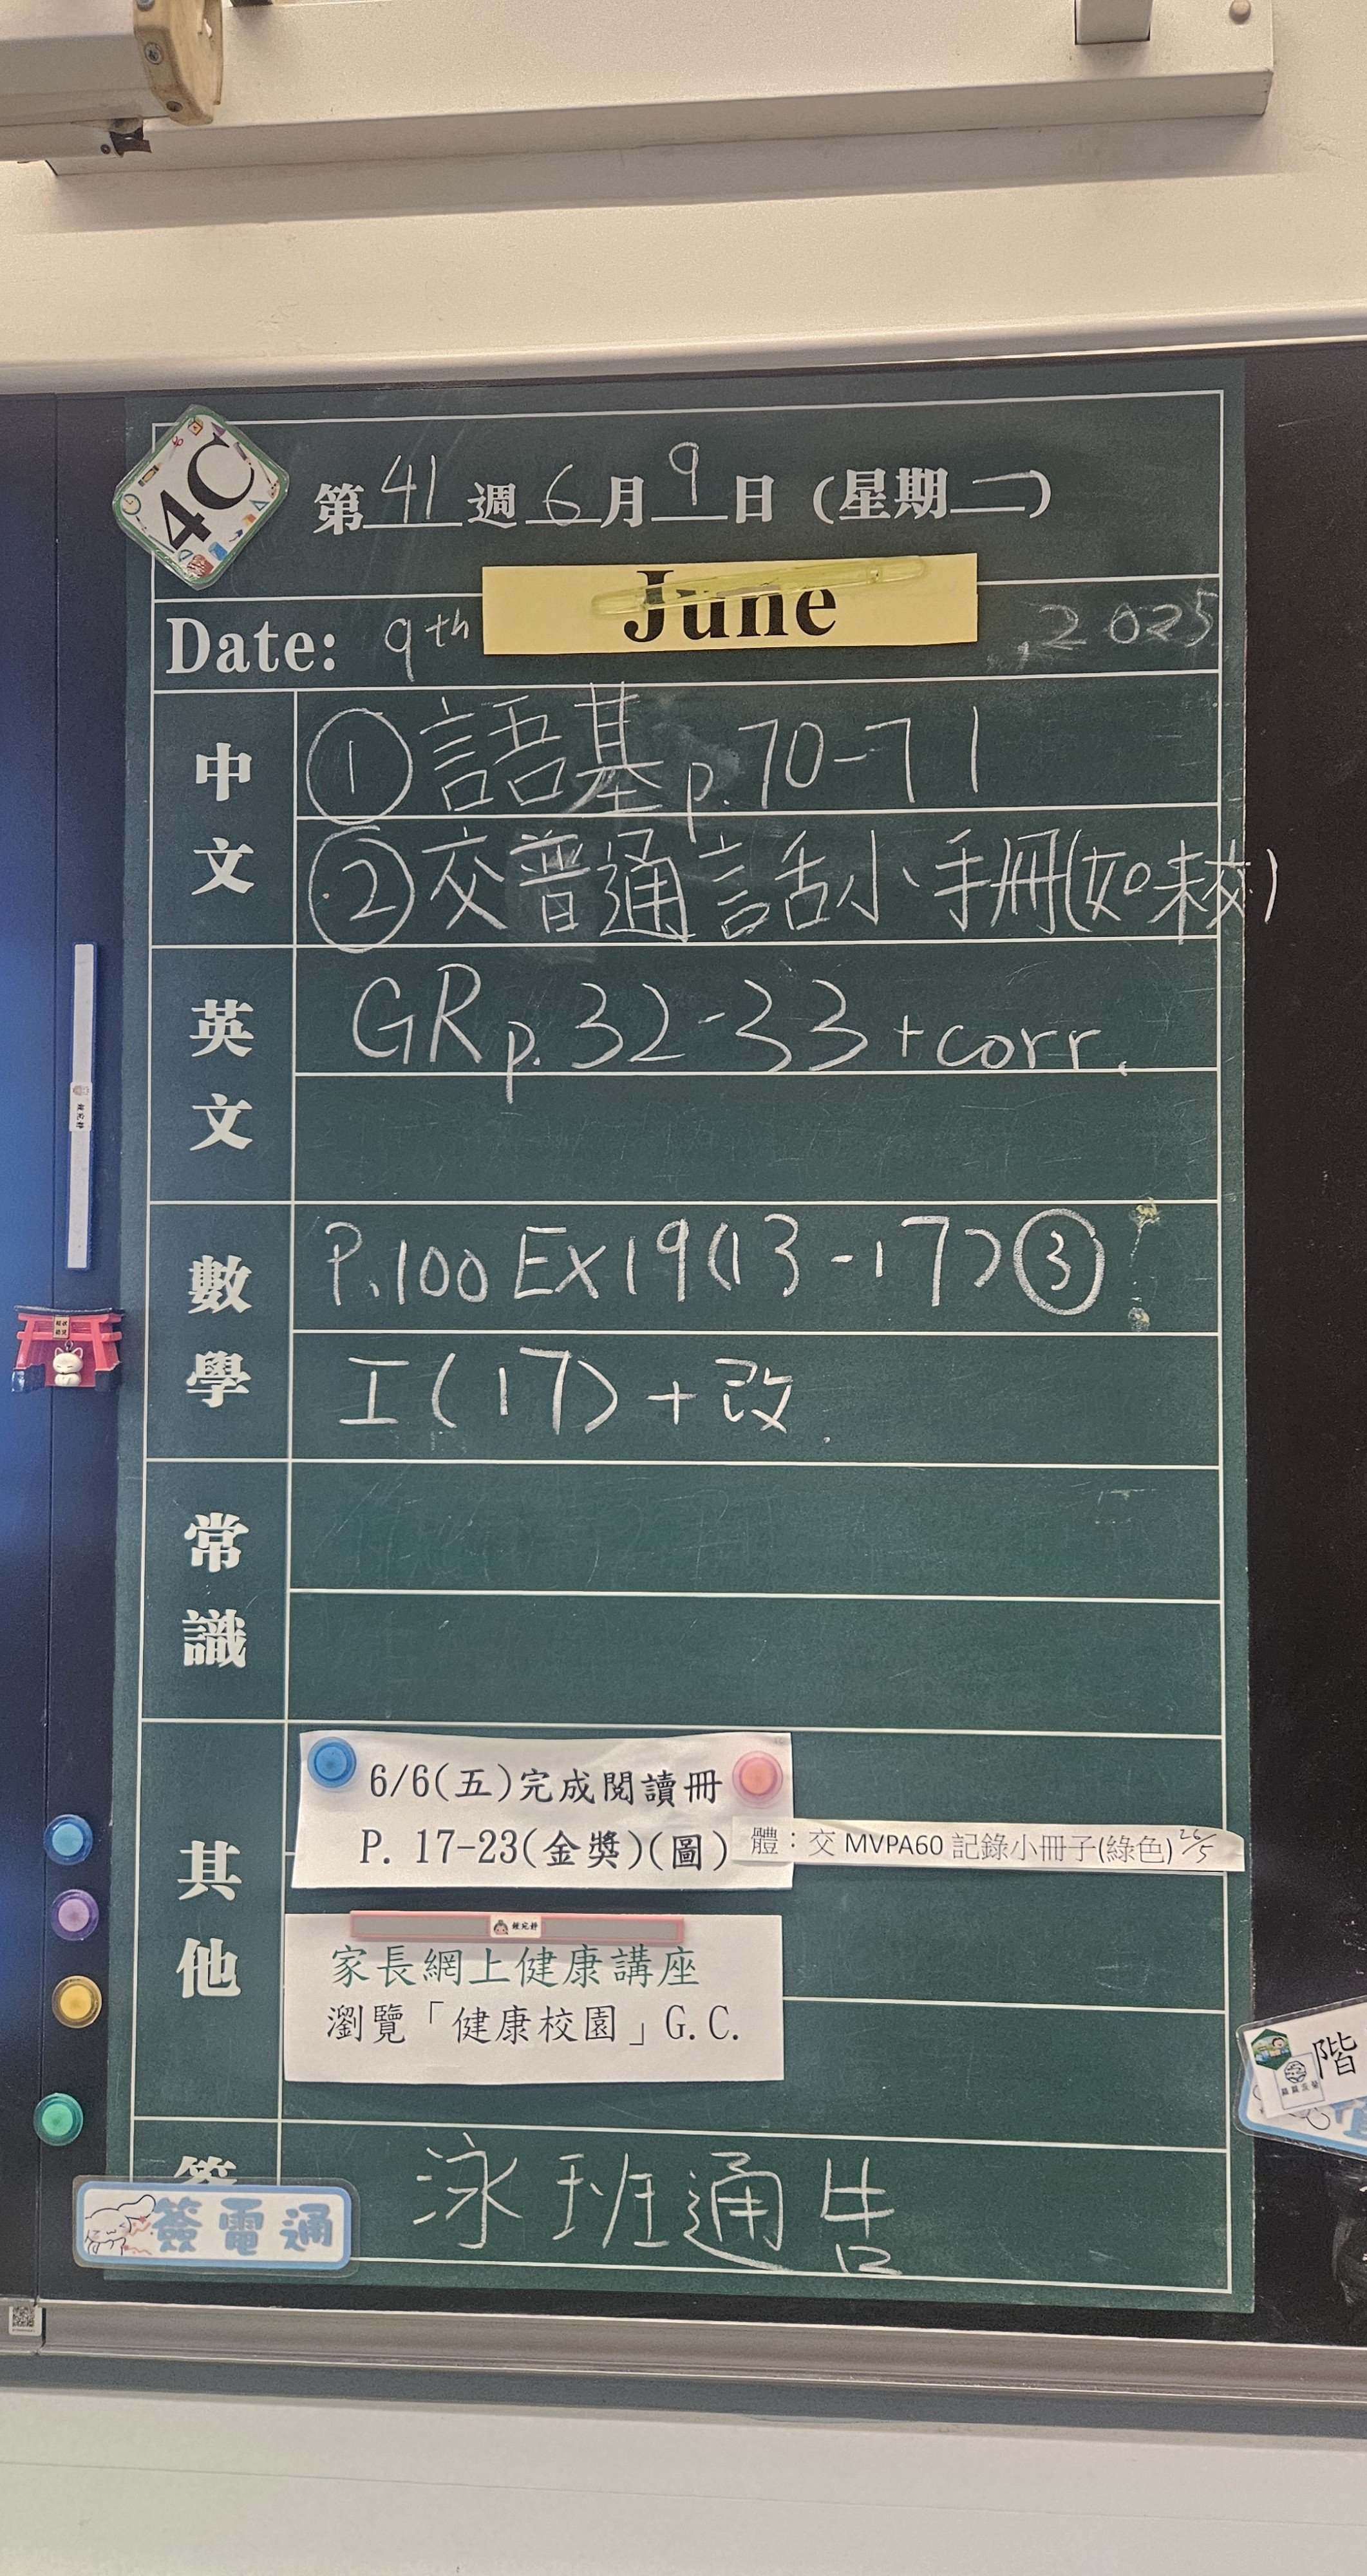 4C
第 41 週 6 月 9 日 (星期一)
Date: 9th June , 2025
中文
① 語基 p.70-71
② 交普通話小手冊(如未交)
英文
GR p.32-33 + corr.
數學
P.100 Ex19(13-17)③
工(17)+改
常識
其他
6/6(五)完成閱讀冊
P. 17-23(金獎)(圖)
體：交 MVPA60 記錄小冊子(綠色) 26/5
家長網上健康講座
瀏覽「健康校園」G.C.
簽電通
泳班通告
階